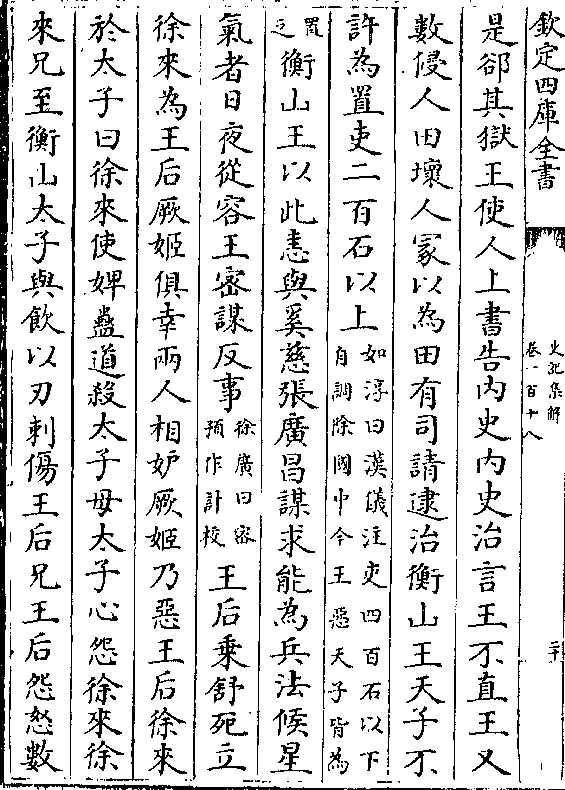 欽定四庫全書
史記集解
卷一百十八
二十
是卻其獄王使人上書告內史內史治言王不直王又
數侵人田壞人冢以為田有司請逮治衡山王天子不
許為置吏二百石以上如淳曰漢儀注吏四百石以下自調除國中今王惡天子皆為
置之衡山王以此恚與奚慈張廣昌謀求能為兵法候星
氣者日夜從容王密謀反事徐廣曰密預作計校王后乘舒死立
徐來為王后厥姬俱幸兩人相妒厥姬乃惡王后徐來
於太子曰徐來使婢蠱道殺太子母太子心怨徐來徐
來兄至衡山太子與飲以刃刺傷王后兄王后怨怒數